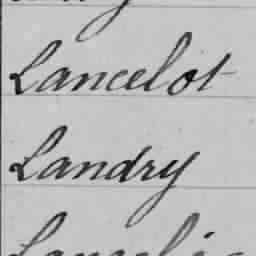 Lancelot
Landry